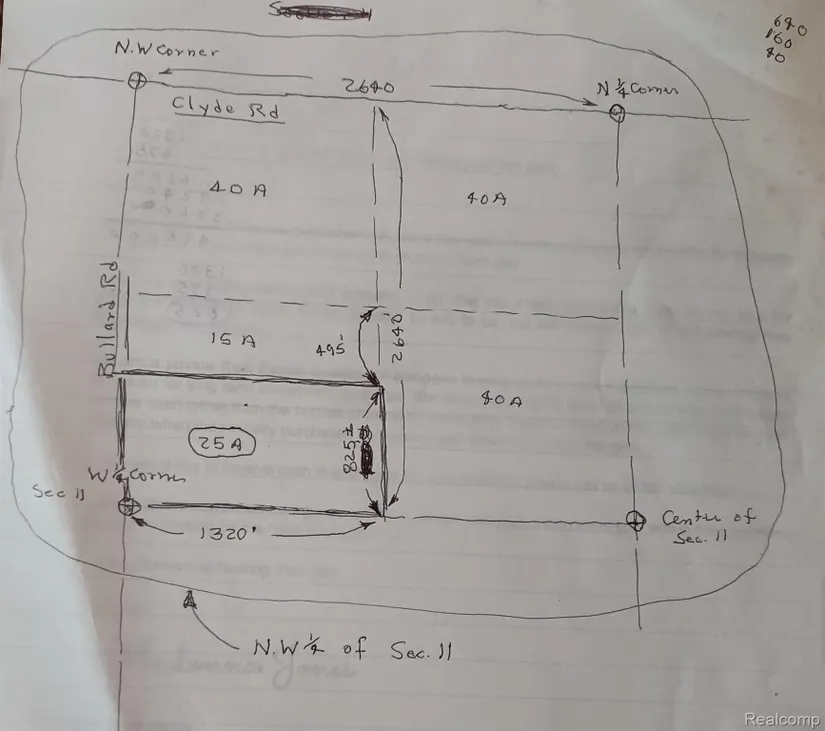 640
160
80
N.W Corner
2640
N 1/4 Corner
Clyde Rd
40 A
40 A
Bullard Rd
15 A
495'
2640
40 A
25 A
825±
W 1/4 Corner
Sec 11
1320'
Center of
Sec. 11
N.W 1/4 of Sec. 11
Realcomp